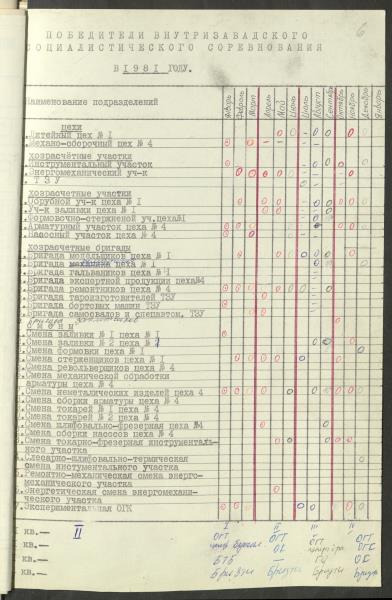 6
ПОБЕДИТЕЛИ ВНУТРИЗАВАДСКОГО
СОЦИАЛИСТИЧЕСКОГО СОРЕВНОВАНИЯ
В 1981 ГОДУ.
Наименование подразделений
Январь Февраль Март Апрель Май Июнь Июль Август Сентябрь Октябрь Ноябрь Декабрь Январь
цехи
Литейный цех № 1
Механо-сборочный цех № 4
хозрасчётные участки
Инструментальный участок
Энергомеханический уч-к
ТЗУ
хозрасчетные участки
Обрубной уч-к цеха № 1
Уч-к заливки цеха № 1
Формовочно-стержневой уч.цеха№1
Арматурный участок цеха № 4
Насосный участок цеха № 4
хозрасчетные бригады
Бригада модельщиков цеха № 1
Бригада механика цеха № 1
Бригада гальваников цеха № 4
Бригада экспортной продукции цеха№4
Бригада ремонтников цеха № 4
Бригада тароизготовителей ТЗУ
Бригада бортовых машин ТЗУ
Бригада самосвалов и спецавтом. ТЗУ
Смены
Смена заливки № 1 цеха № 1
Смена заливки № 2 цеха № 1
Смена формовки цеха № 1
Смена стерженщиков цеха № 1
Смена револьверщиков цеха № 4
Смена механической обработки
арматуры цеха № 4
Смена неметалических изделий цеха 4
Смена сборки арматуры цеха № 4
Смена токарей № 1 цеха № 4
Смена токарей № 2 цеха № 4
Смена шлифовально-фрезерная цеха №4
Смена сборки насосов цеха № 4
Смена токарно-фрезерная инструменталь-
ного участка
Слесарно-шлифовально-термическая
смена инстументального участка
Ремонтно-механическая смена энерго-
механического участка
Энергетическая смена энергомехани-
ческого участка
Экспериментальная ОГК
I II III IV
кв.— II ОГТ ОГТ ОГТ
кв.—
кв.— БТБ
кв.—